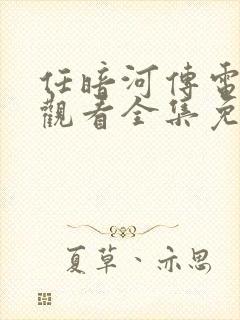 任暗河傳電
觀看全集免
夏草、亦思